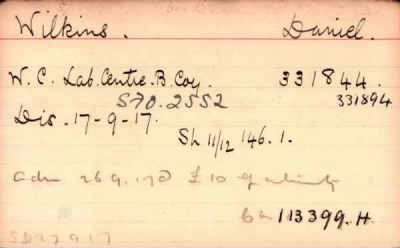 Wilkins. Daniel.
W. C. Lab. Centre. B. Coy. 331844.
S70.2552 331894
Dis. 17-9-17.
Sh 11/12 146.1.
26 9. £10
113399. H.
SD 27 9 17